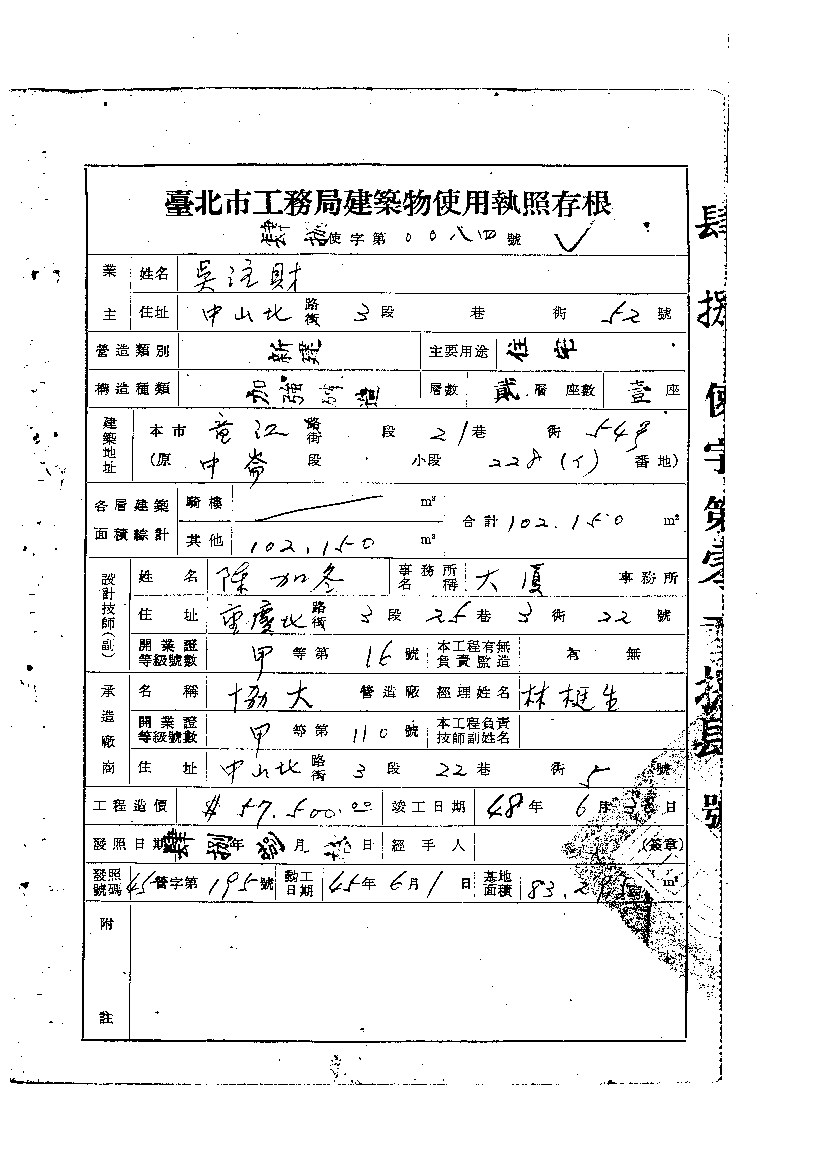 臺北市工務局建築物使用執照存根
肆捌使字第00八四號
業主 姓名 吳注財
住址 中山北路街 3段 巷 街 52號
營造類別 新建 主要用途 住宅
構造種類 加強磚造 層數 貳層 座數 壹座
建築地址 本市 龍江路街 段 21巷 街 54號
(原 中崙段 小段 228(イ) 番地)
各層建築面積綜計 騎樓 m² 合計 102.150 m²
其他 102.150 m²
設計技師(副) 姓名 陳加冬 事務所名稱 大廈 事務所
住址 重慶北路街 3段 25巷 3街 22號
開業證等級號數 甲等第 16號 本工程有無負責監造 有 無
承造廠商 名稱 協大 營造廠 經理姓名 林梃生
開業證等級號數 甲等第 110號 本工程負責技師副姓名
住址 中山北路街 3段 22巷 街 5號
工程造價 $57.500.00 竣工日期 48年 6月 日
發照日期 肆捌年 捌月 日 經手人 (簽章)
發照號碼 45營字第195號 動工日期 45年6月1日 基地面積 83.2 m²
附註
肆捌使字第零 號